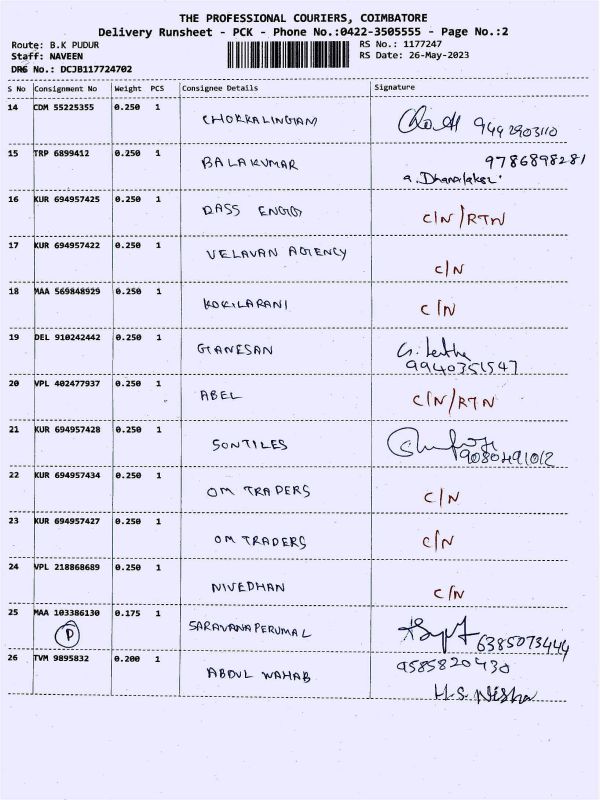 THE PROFESSIONAL COURIERS, COIMBATORE
Delivery Runsheet - PCK - Phone No.:0422-3505555 - Page No.:2
Route: B.K PUDUR RS No.: 1177247
Staff: NAVEEN RS Date: 26-May-2023
DRS No.: DCJB117724702
S No Consignment No Weight PCS Consignee Details Signature
14 CDM 55225355 0.250 1 CHOKKALINGAM 9442903110
15 TRP 6899412 0.250 1 BALAKUMAR 9786898281
16 KUR 694957425 0.250 1 DASS ENERGY C/N/RTN
17 KUR 694957422 0.250 1 VELAVAN AGENCY C/N
18 MAA 569848929 0.250 1 KOKILARANI C/N
19 DEL 910242442 0.250 1 GANESAN
9940351547
20 VPL 402477937 0.250 1 ABEL C/N/RTN
21 KUR 694957428 0.250 1 SONTILES
9080491012
22 KUR 694957434 0.250 1 OM TRADERS C/N
23 KUR 694957427 0.250 1 OM TRADERS C/N
24 VPL 218868689 0.250 1 NIVEDHAN C/N
25 MAA 103386130 0.175 1 SARAVANAPERUMAL 6385073444
P
26 TVM 9895832 0.200 1 ABDUL WAHAB 9585820430
H.S. Nisha